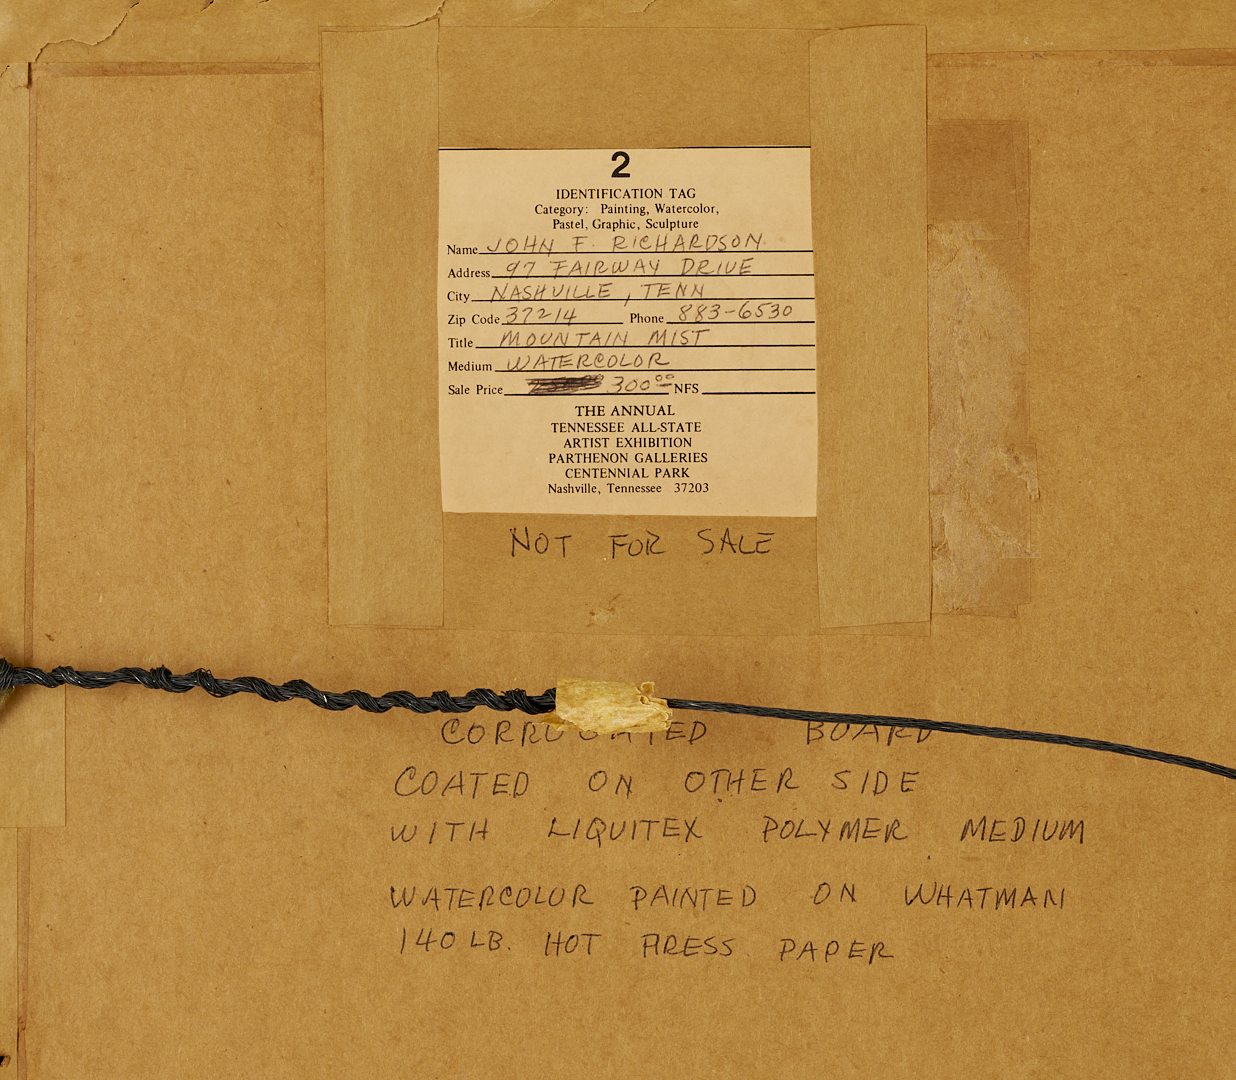 2
IDENTIFICATION TAG
Category: Painting, Watercolor,
Pastel, Graphic, Sculpture
Name JOHN F. RICHARDSON
Address 97 FAIRWAY DRIVE
City NASHVILLE, TENN
Zip Code 37214 Phone 883-6530
Title MOUNTAIN MIST
Medium WATERCOLOR
Sale Price 300.00 NFS
THE ANNUAL
TENNESSEE ALL-STATE
ARTIST EXHIBITION
PARTHENON GALLERIES
CENTENNIAL PARK
Nashville, Tennessee 37203
NOT FOR SALE
CORRUGATED BOARD
COATED ON OTHER SIDE
WITH LIQUITEX POLYMER MEDIUM
WATERCOLOR PAINTED ON WHATMAN
140 LB. HOT PRESS PAPER